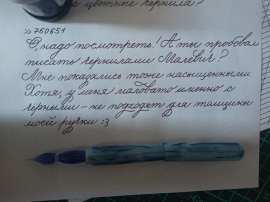 цветные чернила?
>>750651
О, надо посмотреть! А ты пробовал
писать чернилами Малевич?
Мне показались тоже насыщенными
Хотя, у меня маловато именно с
черными - не подходят для толщины
моей ручки :3